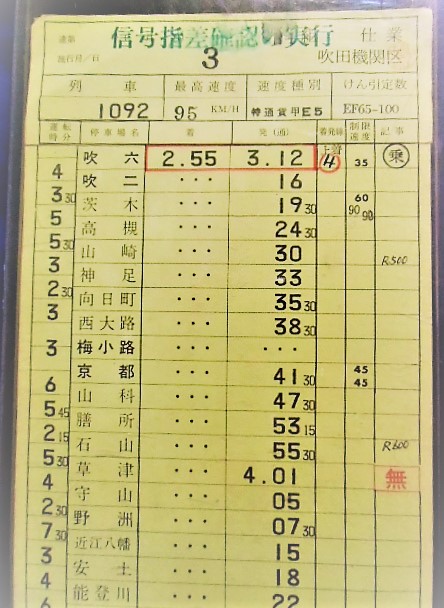 信号指差確認の実行
達第
仕業
施行月/日
3
吹田機関区
列車 最高速度 速度種別 けん引定数
1092 95 KM/H 特通貨甲E5 EF65-100
運転時分 停車場名 着 発(通) 着発線 制限速度 記事
吹六 2.55 3.12 4 35 乗
4
吹二 ・・・ 16
3 30
茨木 ・・・ 19 30 60 90 90
5
高槻 ・・・ 24 30
5 30
山崎 ・・・ 30 R500
3
神足 ・・・ 33
2 30
向日町 ・・・ 35 30
3
西大路 ・・・ 38 30
梅小路 ・・・
3
京都 ・・・ 41 30 45 45
6
山科 ・・・ 47 30
5 45
膳所 ・・・ 53 15
2 15
石山 ・・・ 55 30 R600
5 30
草津 ・・・ 4.01 無
4
守山 ・・・ 05
2 30
野洲 ・・・ 07 30
7 30
近江八幡 ・・・ 15
3
安土 ・・・ 18
4
能登川 ・・・ 22
6